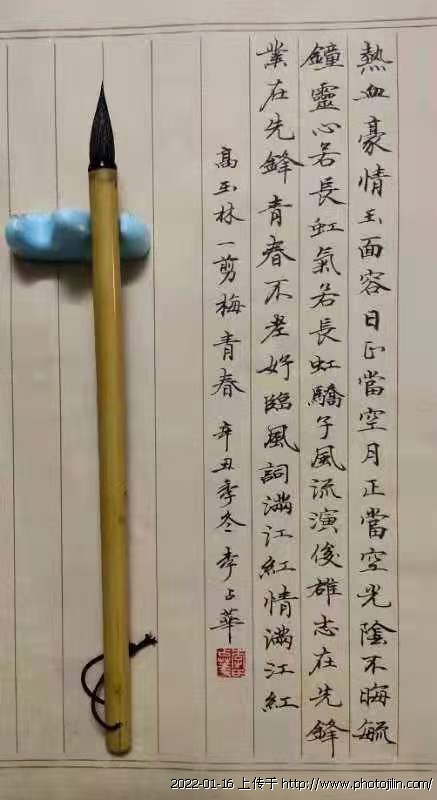 熱血豪情玉面容日正當空月正當空光陰不晦毓
鐘靈心若長虹氣若長虹驕子風流演俊雄志在先鋒
業在先鋒青春不老好臨風詞滿江紅情滿江紅
高玉林一剪梅青春辛丑季冬李占華
2022-01-16 上传于 http://www.photojilin.com/